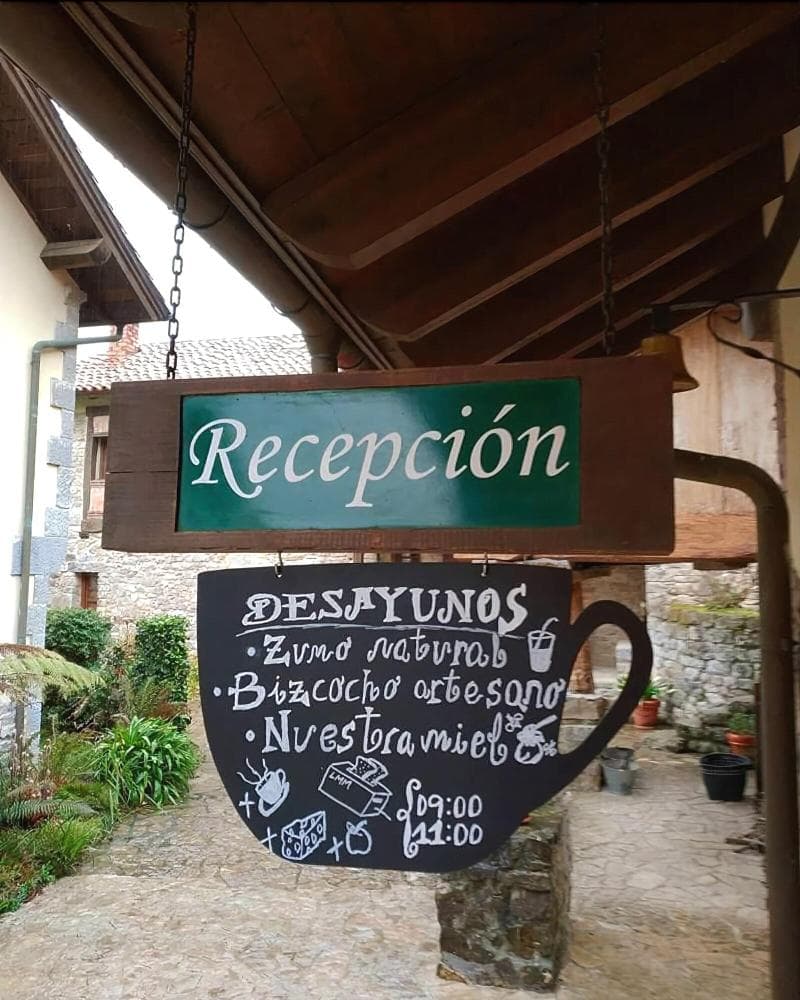 Recepción
DESAYUNOS
• Zumo natural
• Bizcocho artesano
• Nuestra miel
LMM
09:00
11:00